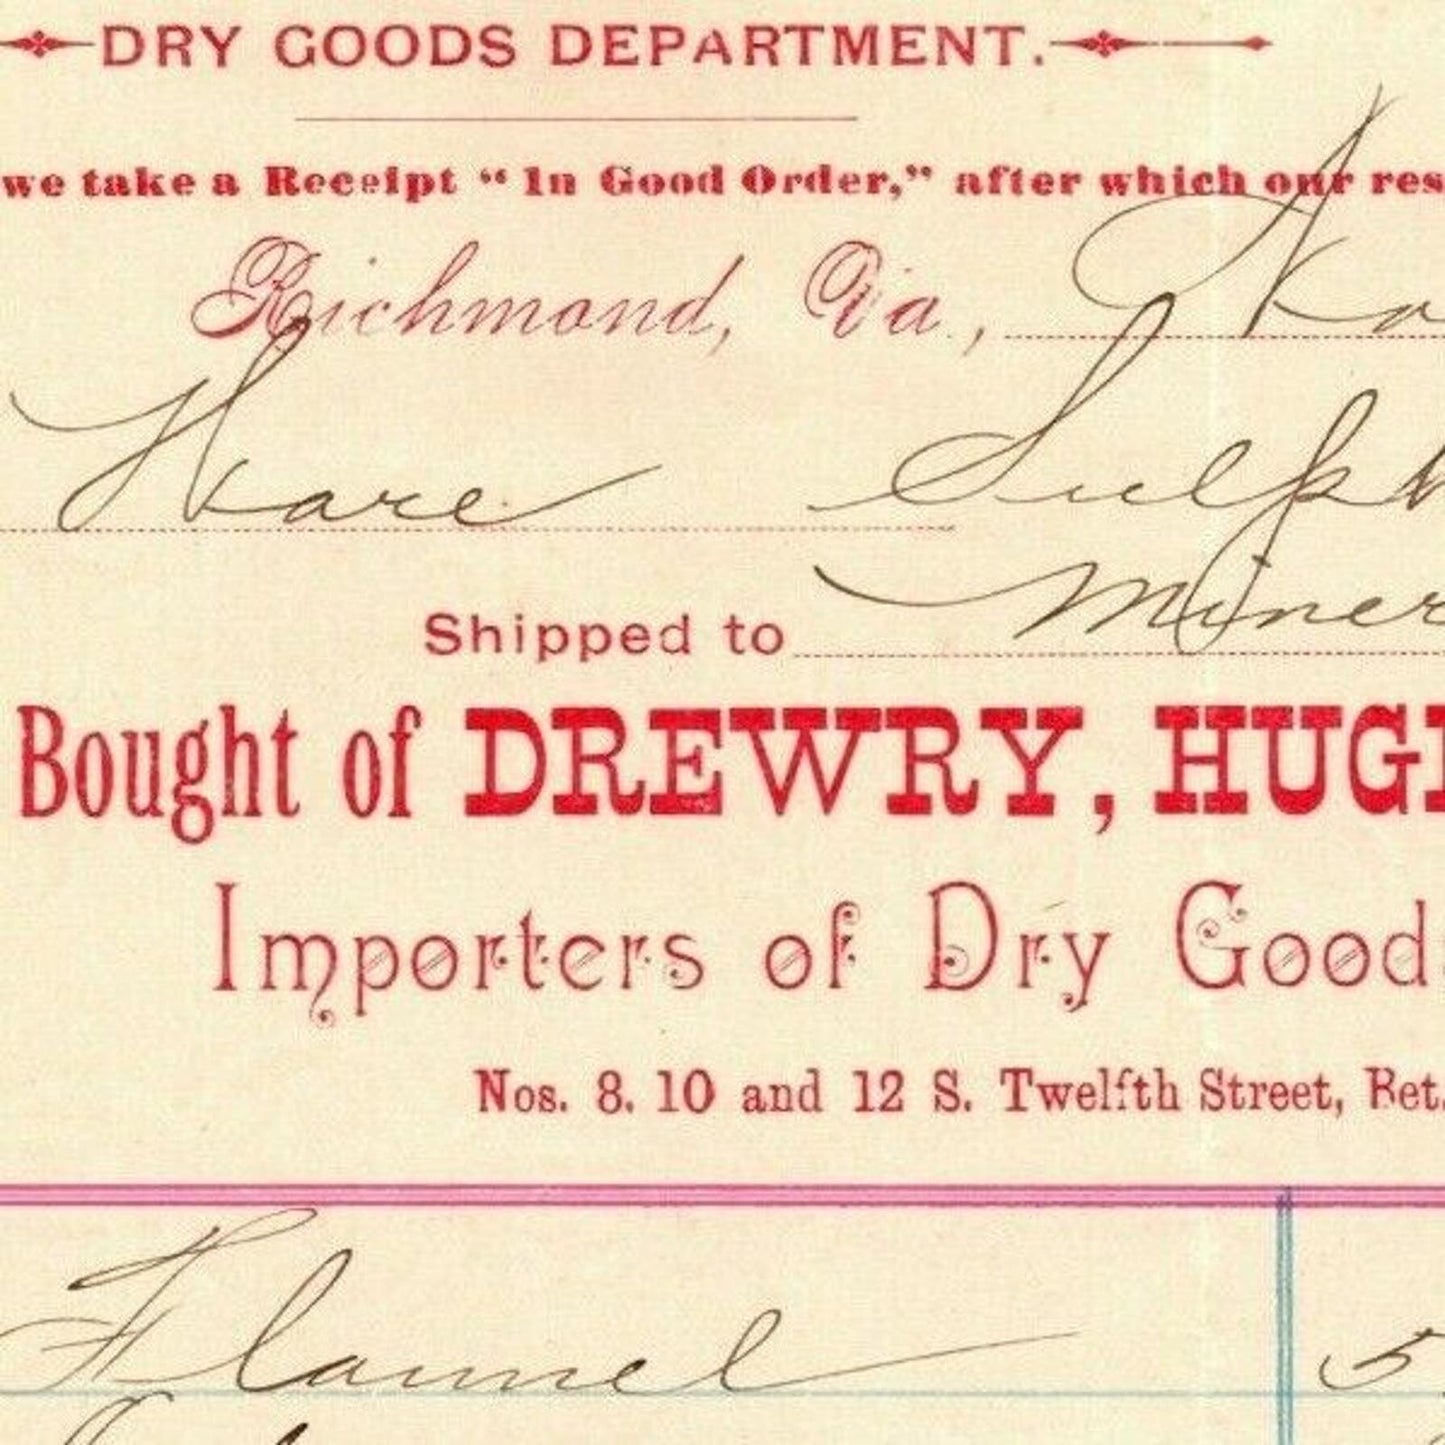 DRY GOODS DEPARTMENT.
we take a Receipt “In Good Order,” after which our res
Richmond, Va.,
Hare Sulph
Shipped to Miner
Bought of DREWRY, HUGH
Importers of Dry Goods
Nos. 8. 10 and 12 S. Twelfth Street, Bet.
Flannel 5